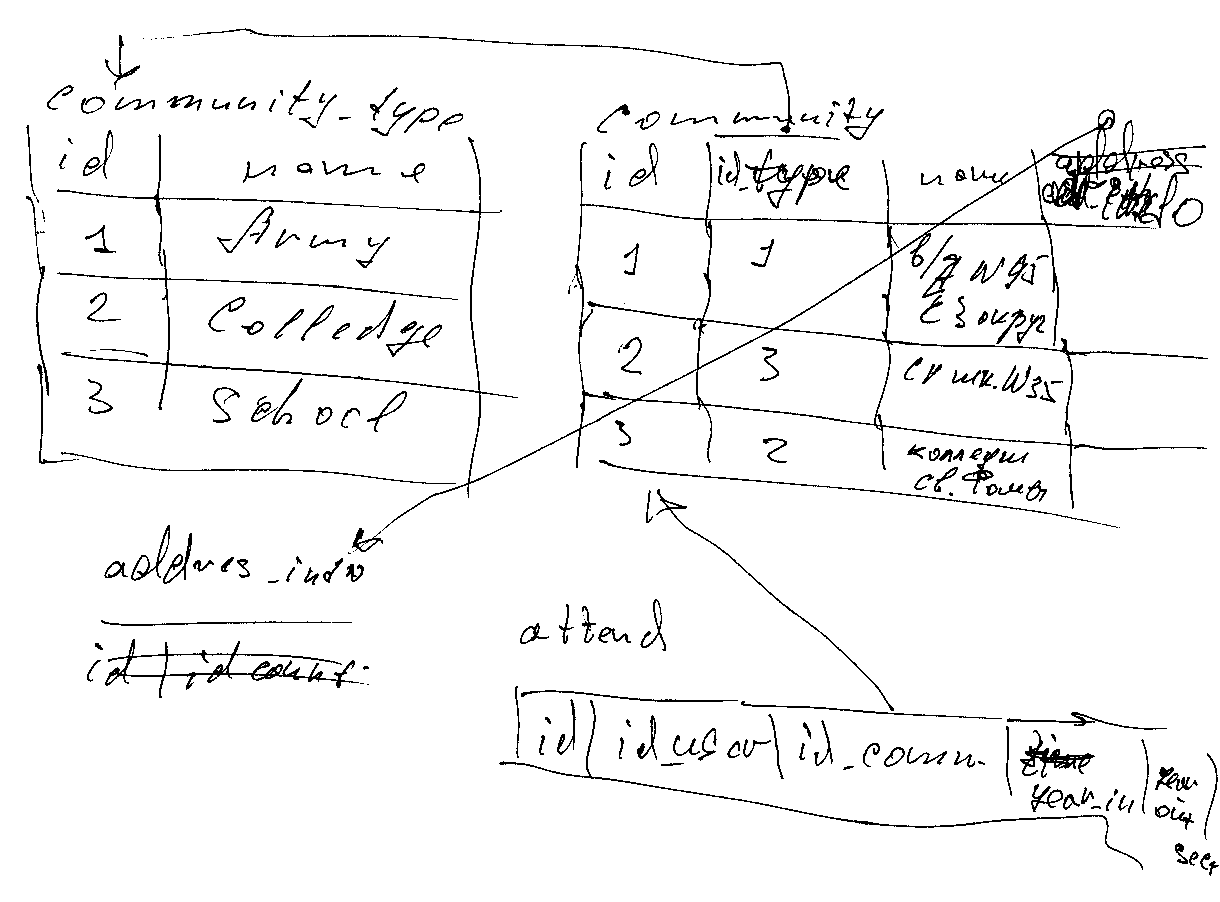 community_type
id name
1 Army
2 Colledge
3 School
community
id id_type name address
1 1 в/ч N 95
СЗ округ
2 3 ср шк. N35
3 2 колледж
св. Фомы
addres_info
id id count.
attend
id id_user id_comm. time
year_in year
out